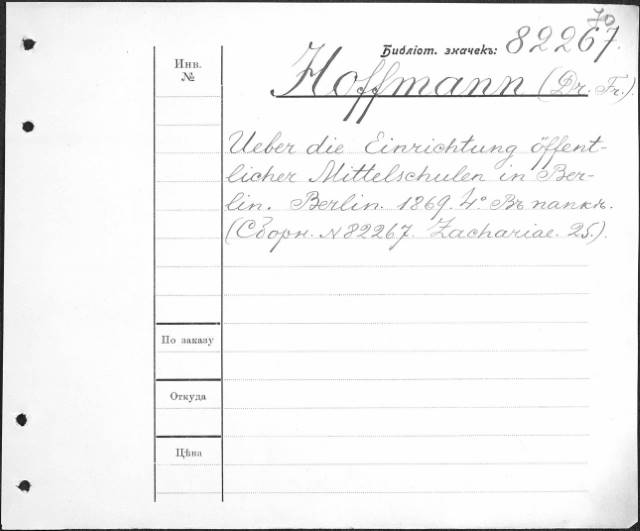 70
Библіот. значекъ: 82267.
Инв.
№
Hoffmann (Dr. Fr.).
Ueber die Einrichtung öffent-
licher Mittelschulen in Ber-
lin. Berlin. 1869. 4° Въ папкѣ.
(Сборн. № 82267. Zachariae. 25.).
По заказу
Откуда
Цѣна